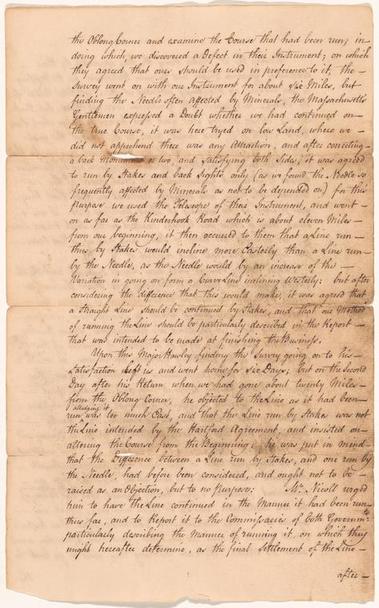 the Oblong Corner and examine the Course that had been run, in
doing which, we discovered a Defect in their Instrument; on which
they agreed that ours should be used in preference to it, the
Survey went on with our Instrument for about six Miles, but
finding the Needle often affected by Minerals, the Massachusetts
Gentlemen expressed a Doubt whether we had continued on
the true Course, it was here tryed on low Land, where we
did not apprehend there was any Attraction, and after correcting
a back Monument or two, and Satisfying both Sides, it was agreed
to run by Stakes and back Sights only (as we found the Needle so
frequently affected by Minerals as not to be depended on) for this
purpose we used the Telescope of their Instrument, and went
on as far as the Kinderhook Road which is about eleven Miles
from our beginning, it then occured to them that a Line run
thus by Stakes would incline more Easterly than a Line run
by the Needle, as the Needle would by an increase of the
Variation in going on form a Curve Line inclining Westerly: but after
considering the difference that this would make, it was agreed that
a straight Line should be continued by Stakes, and that our Method
of running the Line should be particularly described in the Report
that was intended to be made at finishing the Business.
Upon this Major Hawley finding the Survey going on to his
Satisfaction left us and went home for six Days; but on the Second
Day after his Return when we had gone about twenty Miles
from the Oblong Corner, he objected to the Line as it had been
run alledging it was too much East, and that the Line run by Stakes was not
the Line intended by the Hartford Agreement, and insisted on
altering the Course from the Beginning; he was put in mind
that the Difference between a Line run by Stakes, and one run by
the Needle, had before been considered, and ought not to be
raised as an Objection, but to no purpose. Mr. Nicoll urged
him to have the Line continued in the Manner it had been run
thus far, and to Report it to the Commissaries of both Governmts.
particularly describing the Manner of running it, on which they
might hereafter determine, as the final Settlement of the Line
after